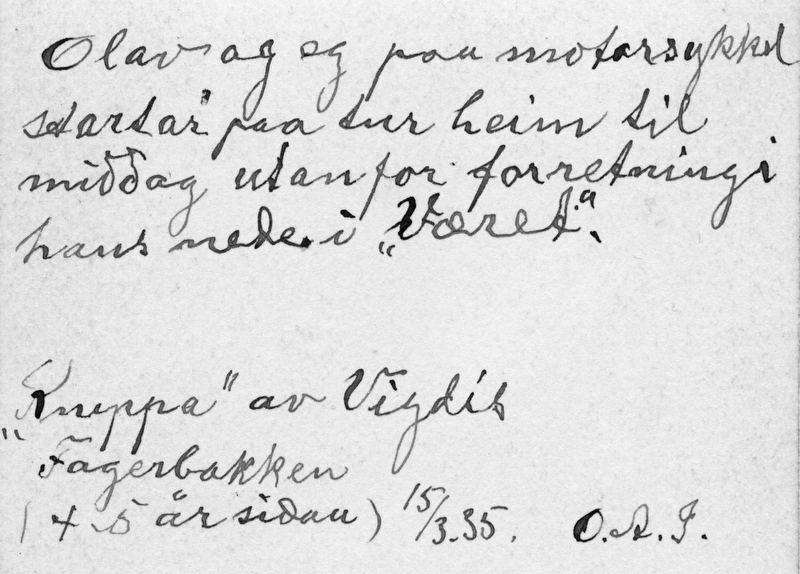 Olav og eg paa motorsykkel
startar paa tur heim til
middag utanfor forretningi
hans nede i „Været".
„Kneppa" av Vigdis
Fagerbakken
(4-5 år sidan) 15/3.35. O.A.F.